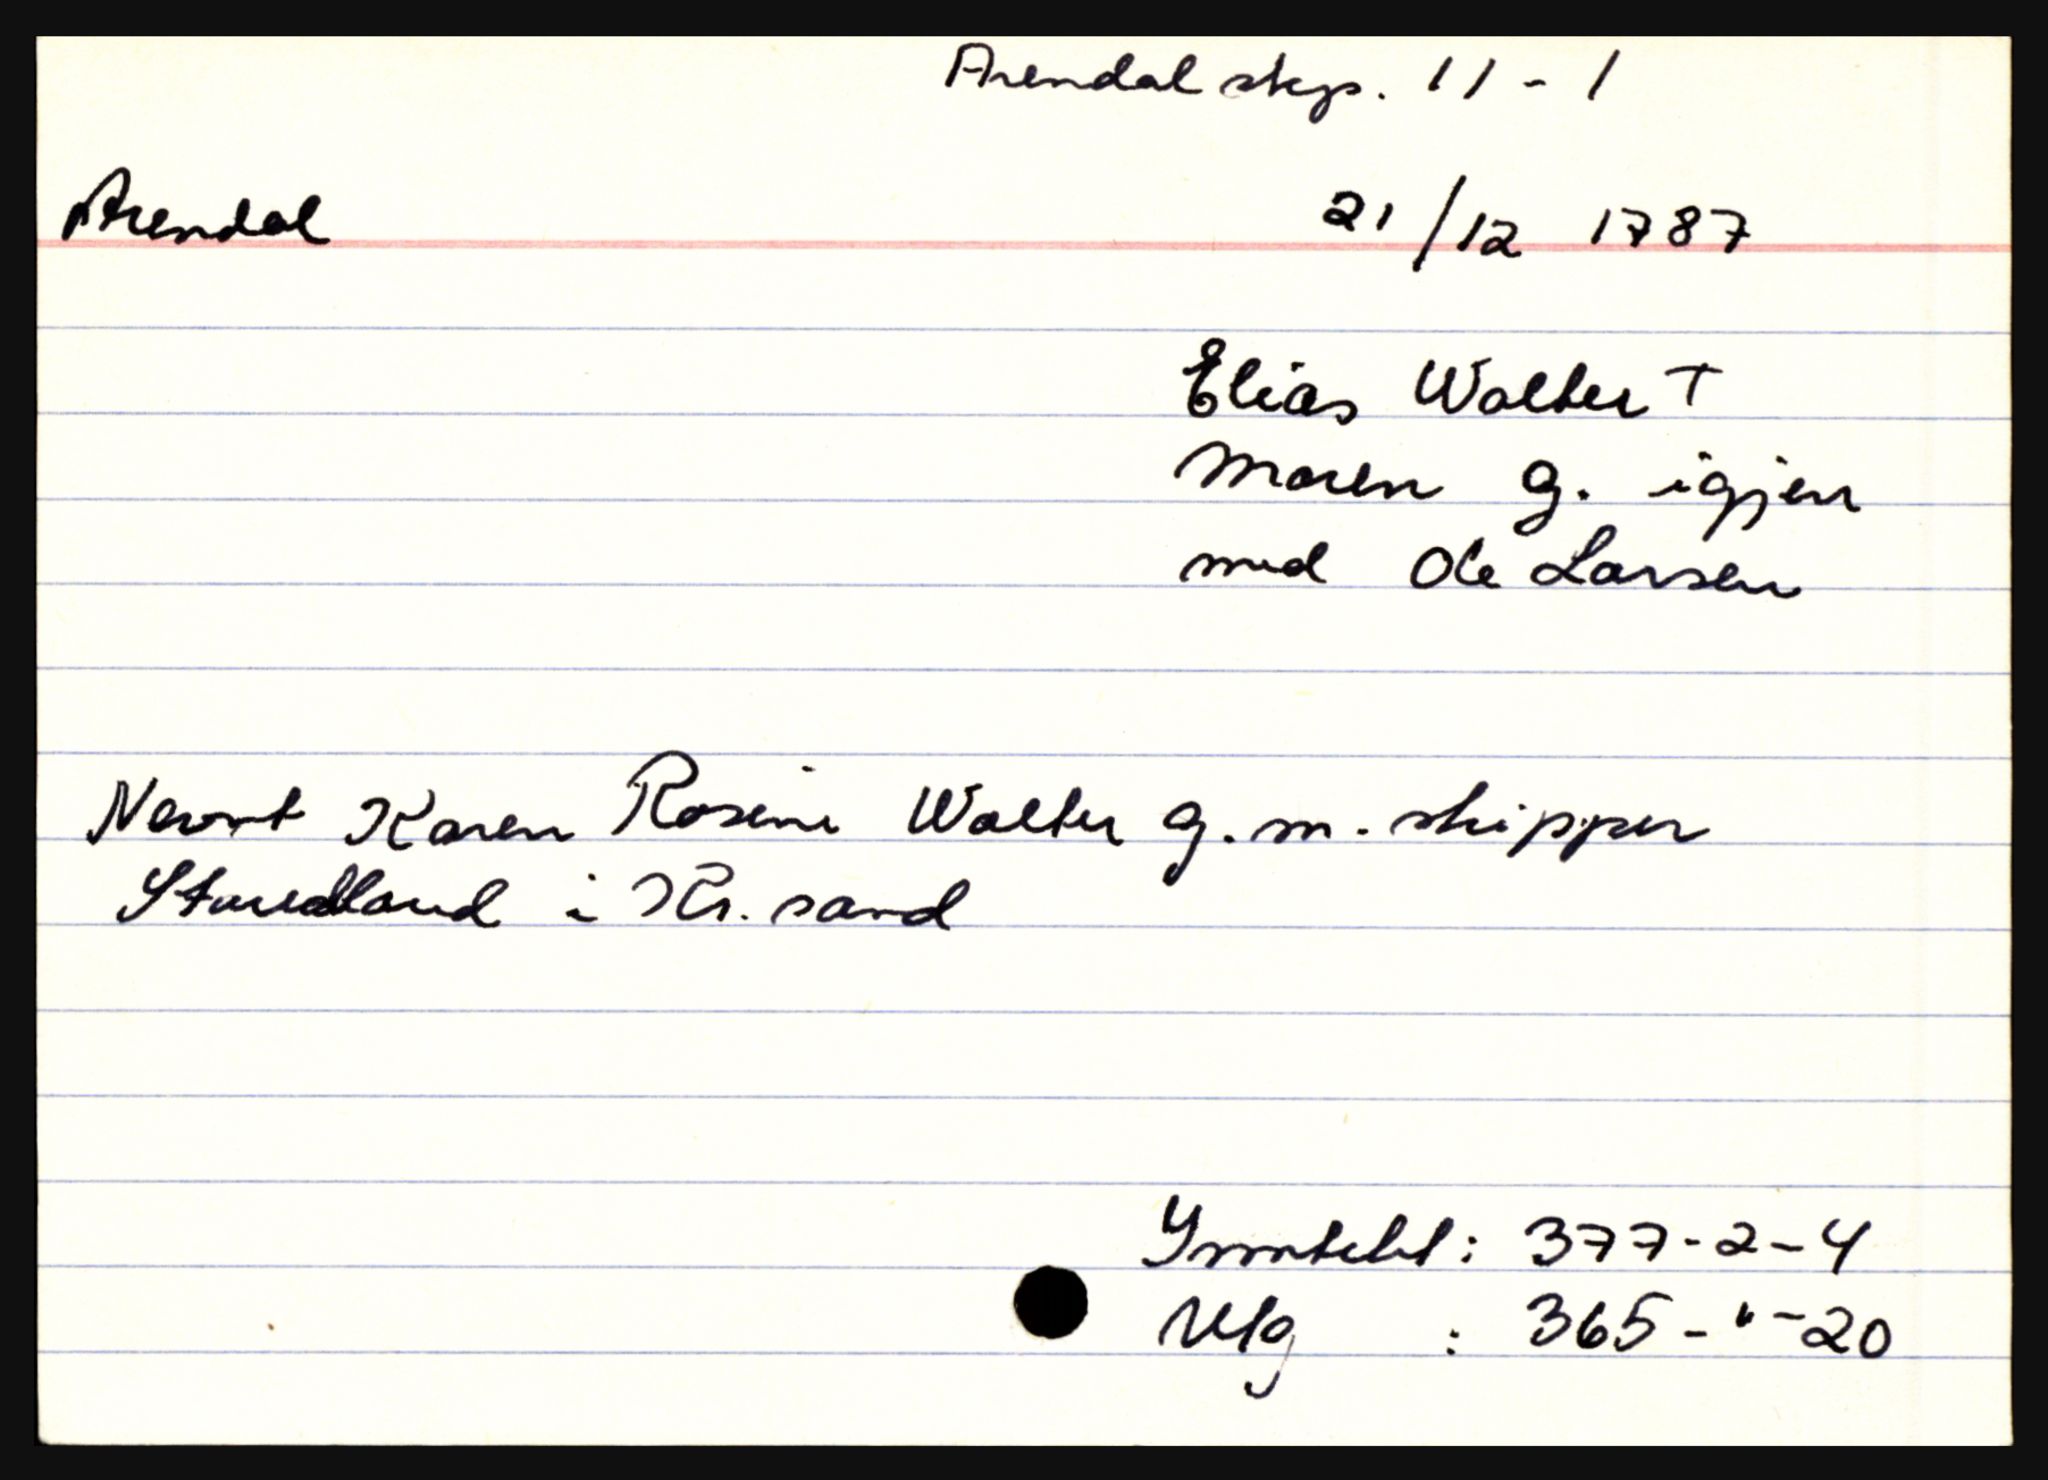 Arendal skp. 11 - 1
Arendal 21/12 1787
Elias Walter †
Maren g. igjen
med Ole Larsen
Nevnt Karen Rosine Walter g. m. skipper
i Kr. sand
Inntekt : 377 - 2 - 4
Utg : 365 - " - 20